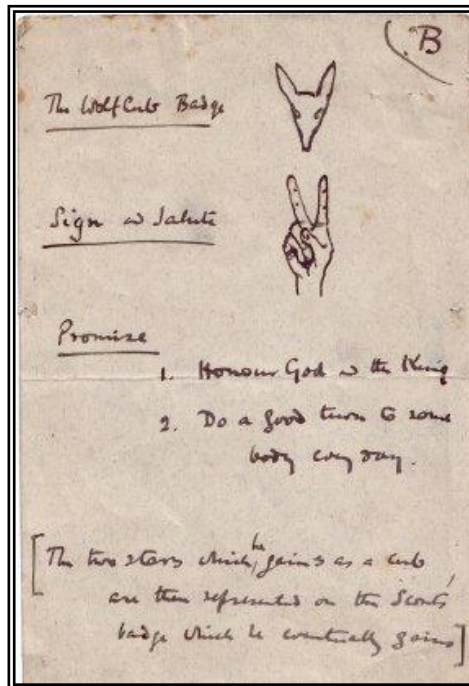 B
The Wolf Cub Badge
Sign & Salute
Promise
1. Honour God & the King
2. Do a good turn to some
body every day.
[The two stars which he gains as a cub,
are then represented on the Scouts'
badge which he eventually gains]